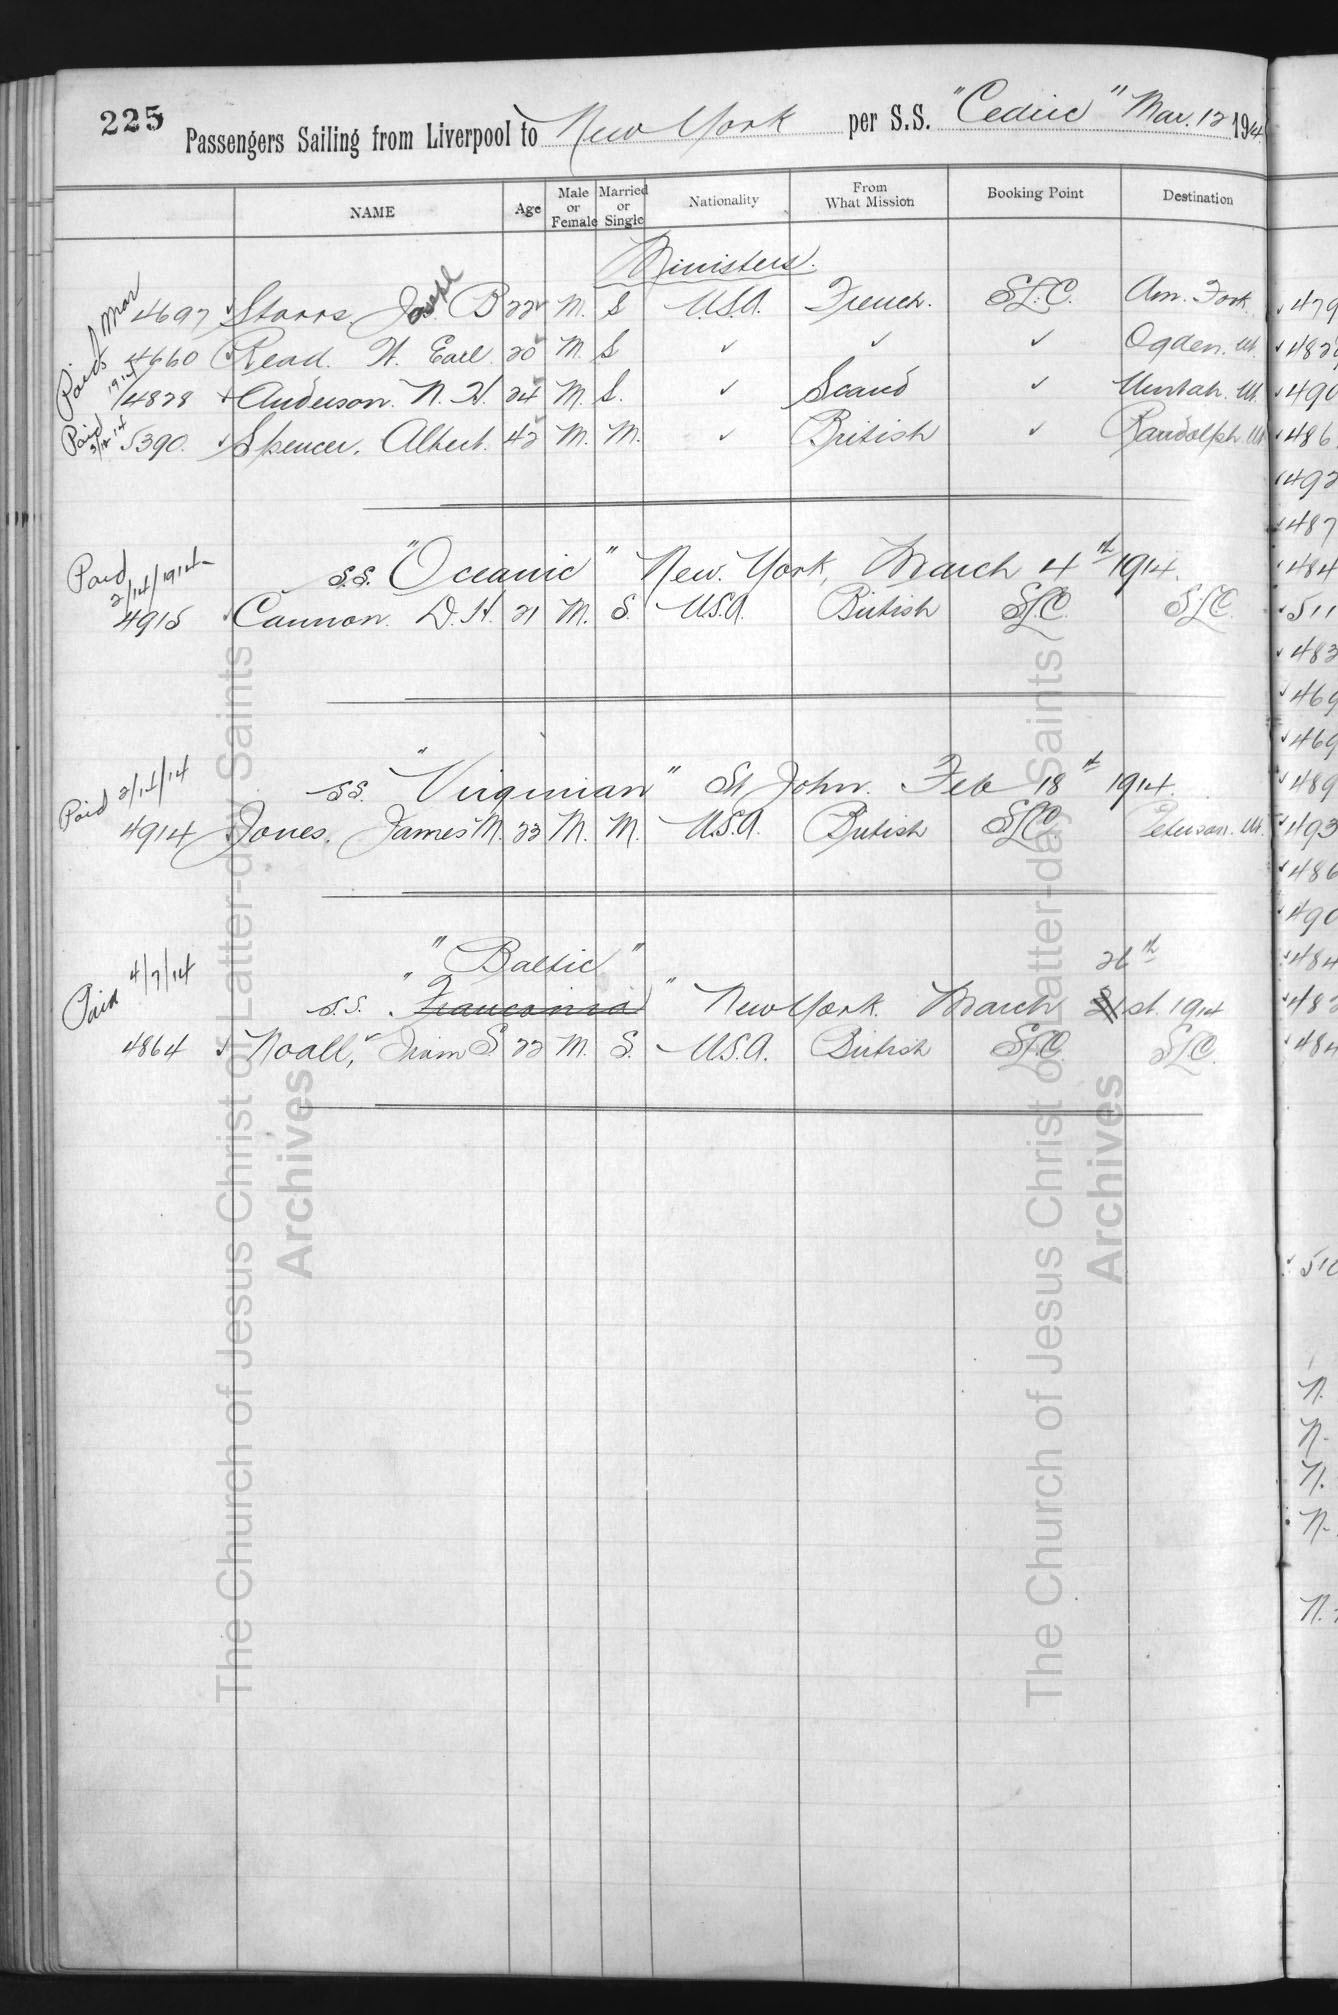 225 Passengers Sailing from Liverpool to New York per S.S. "Cedric" Mar. 12 1914
NAME Age Male or Female Married or Single Nationality From What Mission Booking Point Destination
Ministers.
Paid Mar 1914
4697 ✓ Storrs, Joseph B 22 M. S U.S.A. French. S.L.C. Am. Fork.
4660 ✓ Read. W. Earl. 20 M. S ✓ ✓ ✓ Ogden. Ut.
4878 ✓ Anderson. N. H. 24 M. S. ✓ Scand ✓ Uintah. Ut.
Paid 3/12 14
5390. ✓ Spencer, Albert. 42 M. M. ✓ British ✓ Randolph. Ut.
Paid 2/14/1914
S.S. "Oceanic" New York, March 4th 1914.
4915 ✓ Cannon. D. H. 21 M. S. U.S.A. British S.L.C. S.L.C.
Paid 2/14/14
S.S. "Virginian" St John. Feb 18th 1914.
4914 ✓ Jones. James M. 23 M. M. U.S.A. British S.L.C. Peterson. Ut.
Paid 4/7/14
"Baltic" 26th
S.S. "Franconia" New York. March 31st. 1914
4864 ✓ Noall, S 22 M. S. U.S.A. British S.L.C. S.L.C.
The Church of Jesus Christ of Latter-day Saints
Archives
The Church of Jesus Christ of Latter-day Saints
Archives